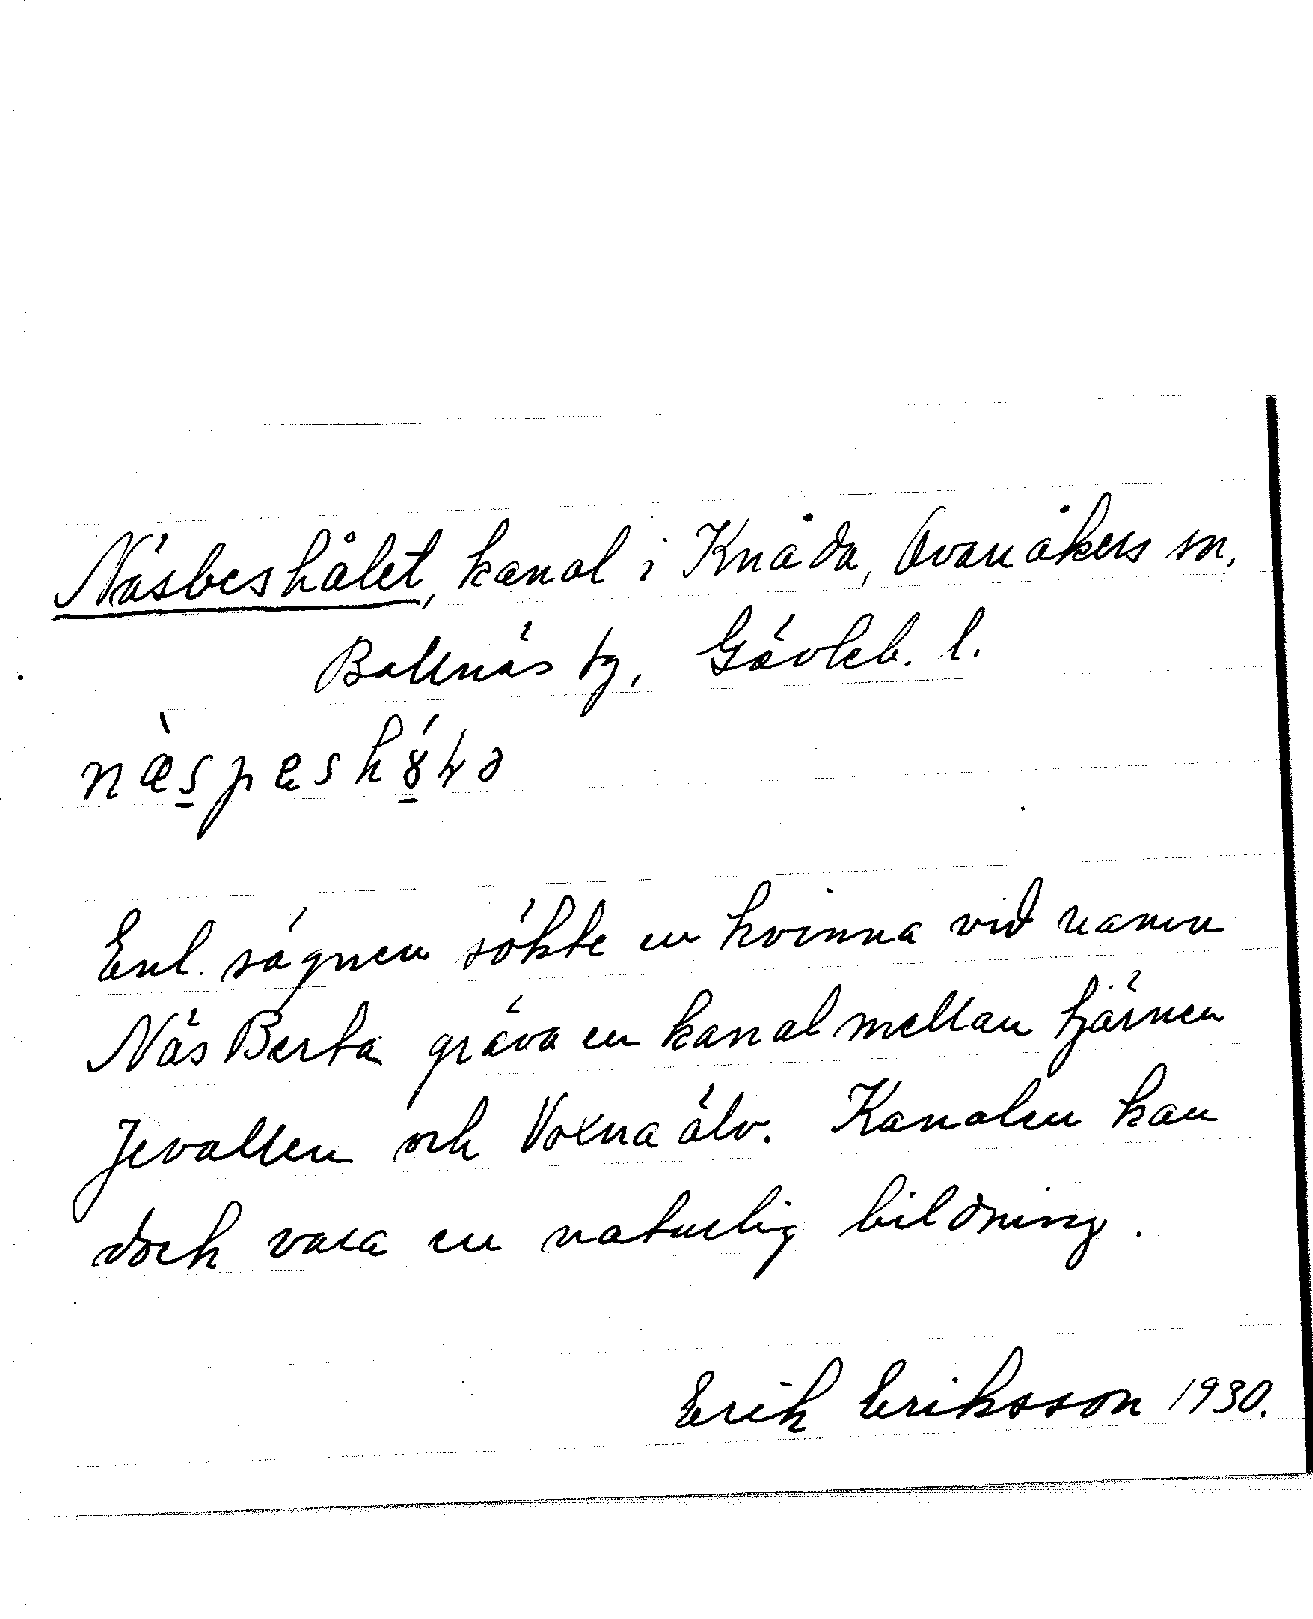 Näsbeshålet, kanal i Knåda, Ovanåkers sn,
Bollnäs tg, Gävleb. l.
Enl. sägnen sökte en kvinna vid namn
Näs Berta gräva en kanal mellan tjärnen
Jevallen och Voxna älv. Kanalen kan
dock vara en naturlig bildning.
Erik Eriksson 1930.